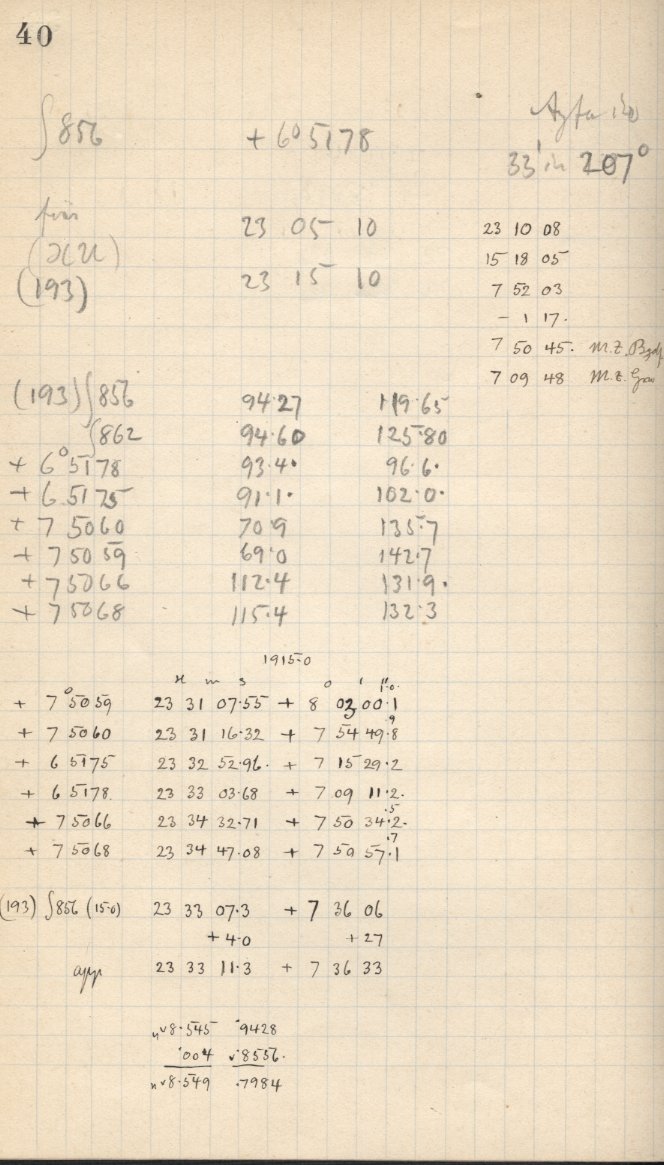 40
∫856 + 6°5178
33' in 207°
für 23 05 10
(193) 23 15 10
23 10 08
15 18 05
7 52 03
- 1 17.
7 50 45. M.Z.
7 09 48 M.Z.
(193) ∫856 94.27 119.65
∫862 94.60 125.80
+ 6°5178 93.4. 96.6.
+ 6 5175 91.1. 102.0.
+ 7 5060 70.9 135.7
+ 7 5059 69.0 142.7
+ 7 5066 112.4 131.9.
+ 7 5068 115.4 132.3
1915.0
H m s ° ' "
+ 7°5059 23 31 07.55 + 8 03 00.1
+ 7 5060 23 31 16.32 + 7 54 49.8
+ 6 5175 23 32 52.96. + 7 15 29.2
+ 6 5178 23 33 03.68 + 7 09 11.2.
+ 7 5066 23 34 32.71 + 7 50 34.2.
+ 7 5068 23 34 47.08 + 7 59 57.1
(193) ∫856 (15.0) 23 33 07.3 + 7 36 06
+ 4.0 + 27
app 23 33 11.3 + 7 36 33
n 8.545 .9428
.004 .8556.
n 8.549 .7984